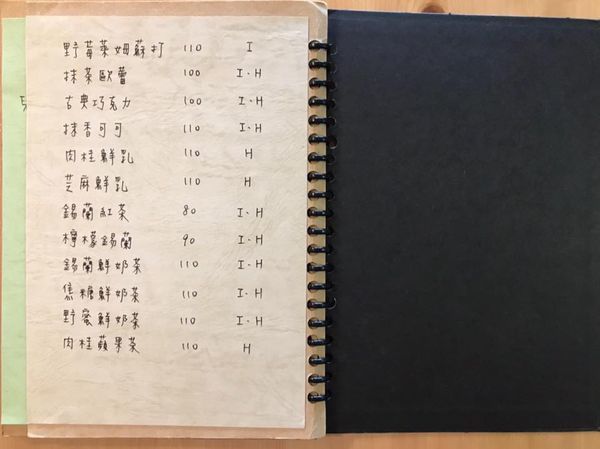 野莓萊姆蘇打 110 I
抹茶歐蕾 100 I·H
古典巧克力 100 I·H
抹香可可 110 I·H
肉桂鮮乳 110 H
芝麻鮮乳 110 H
錫蘭紅茶 80 I·H
檸檬錫蘭 90 I·H
錫蘭鮮奶茶 110 I·H
焦糖鮮奶茶 110 I·H
野蜜鮮奶茶 110 I·H
肉桂蘋果茶 110 H